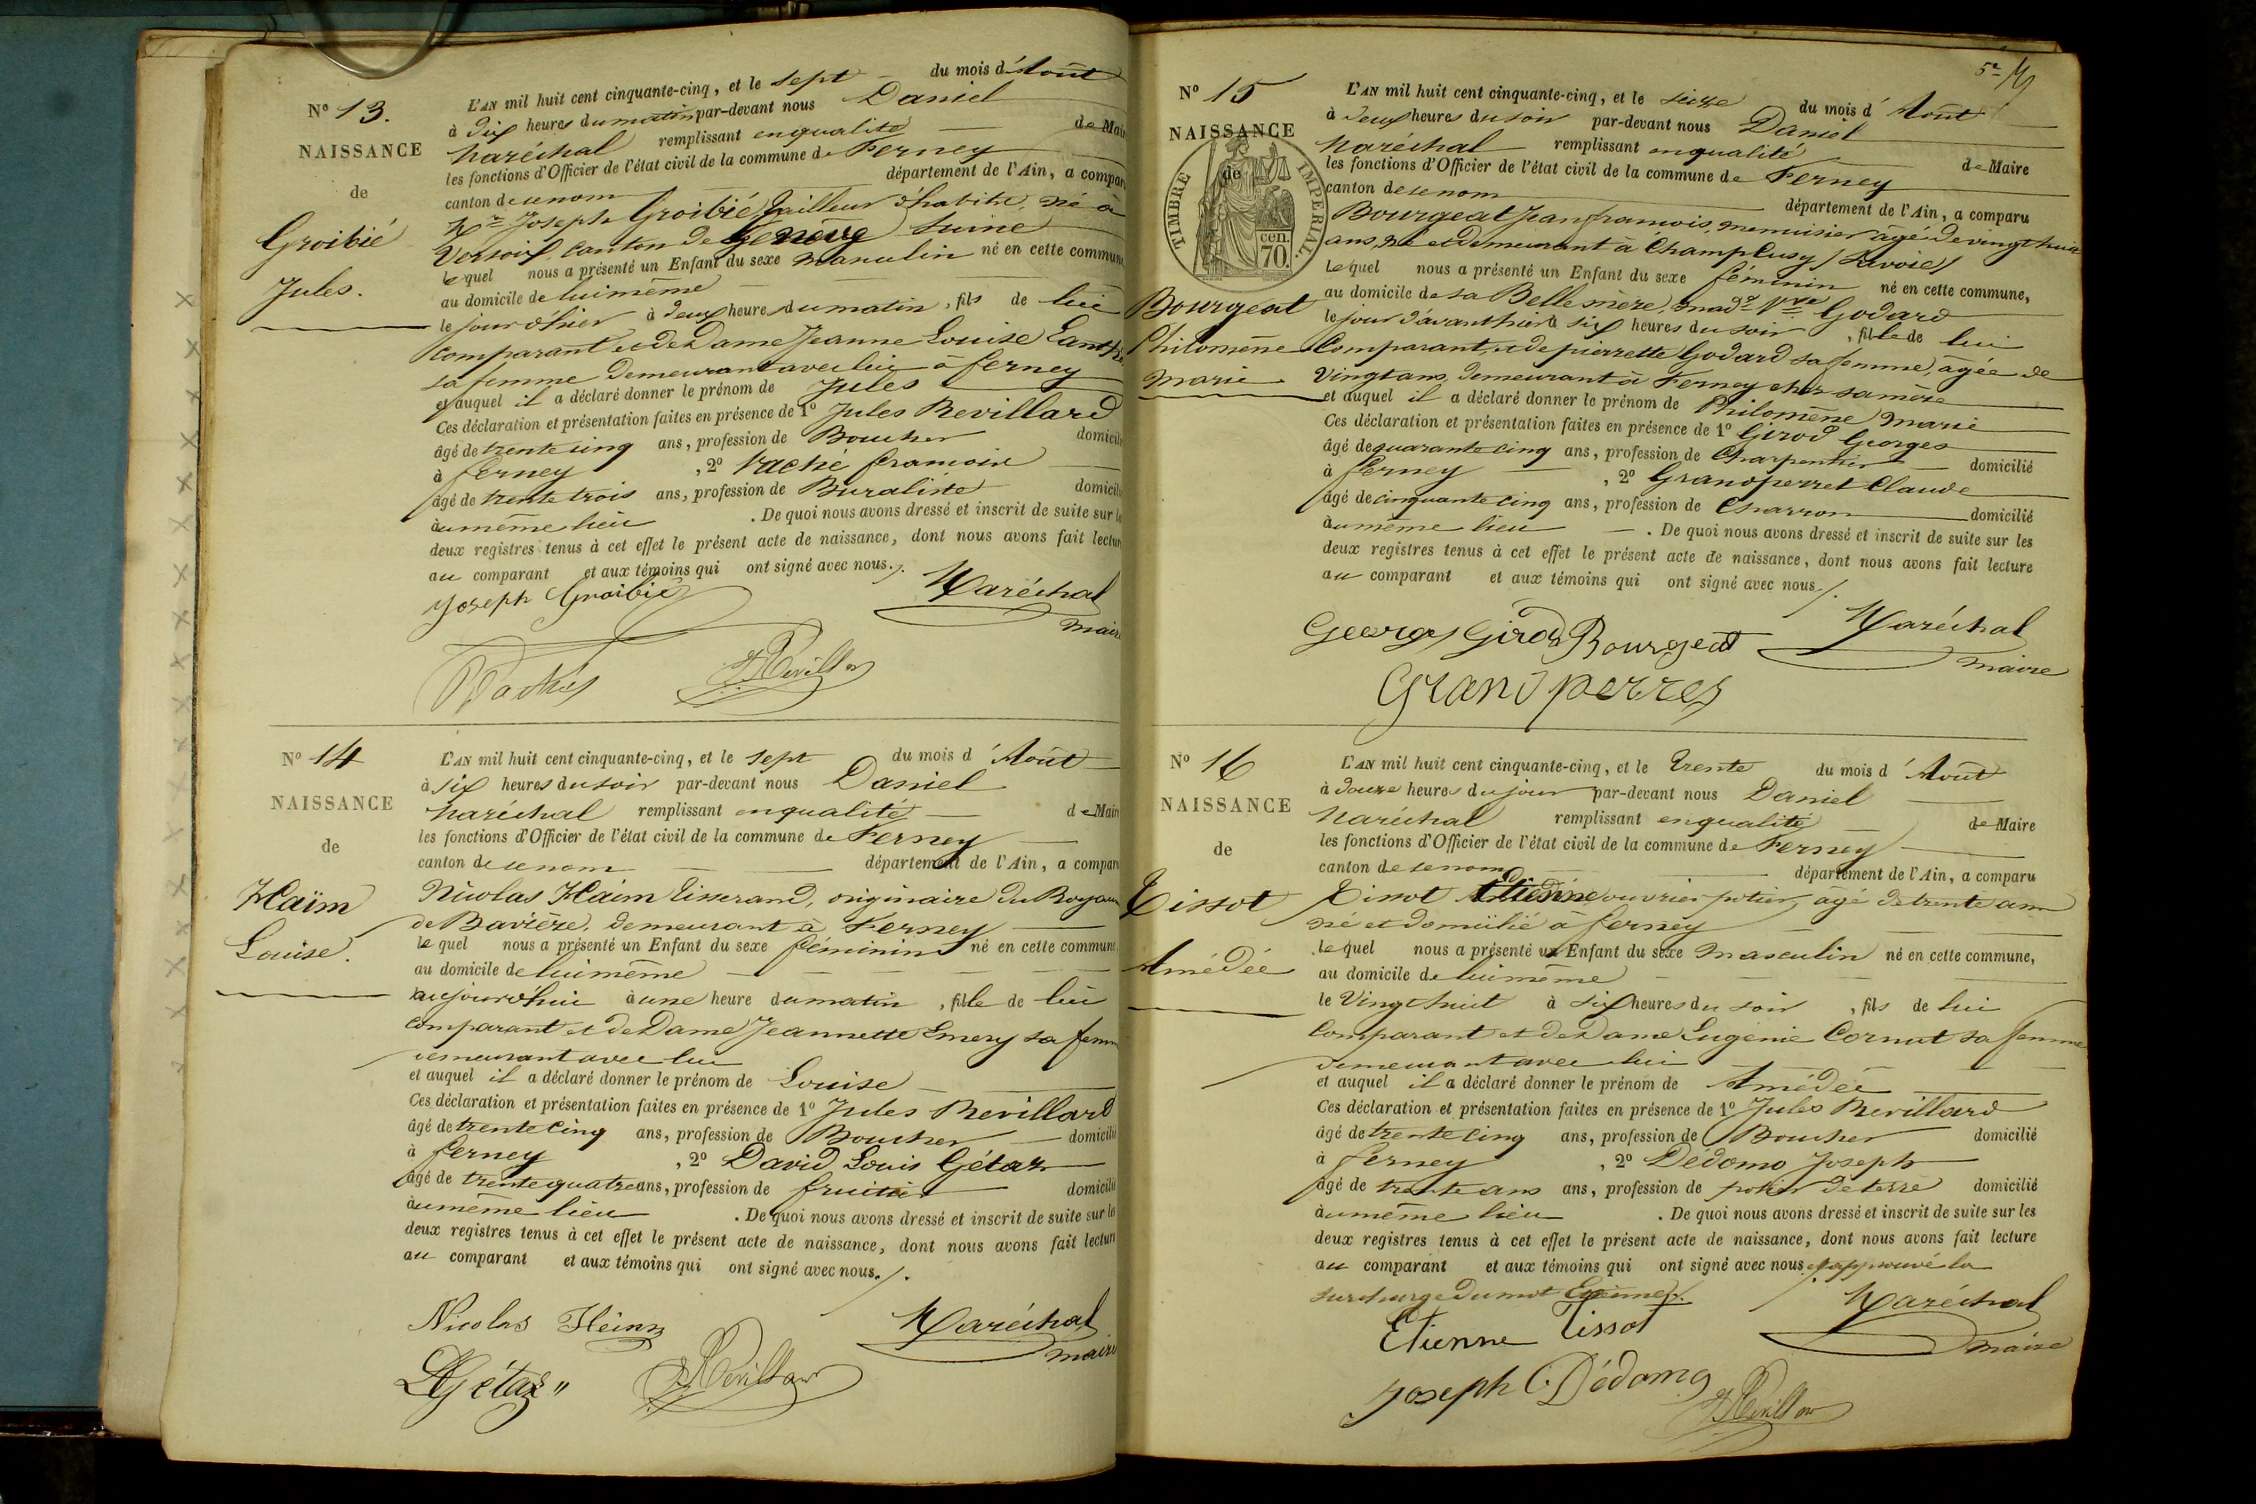 N° 13.
NAISSANCE
de
Groibié
Jules.
L'AN mil huit cent cinquante-cinq, et le sept du mois d'Août
à dix heures du matin par-devant nous Daniel
Maréchal remplissant en qualité de Mair
les fonctions d'Officier de l'état civil de la commune de Ferney
canton de ce nom département de l'Ain, a compar
Joseph Groibié, tailleur d'habits, né à
Versoix, canton de Genève Suisse
lequel nous a présenté un Enfant du sexe masculin né en cette commune
au domicile de lui même
le jour d'hier à deux heure du matin, fils de lui
comparant et de Dame Jeanne Louise
sa femme demeurant avec lui à ferney
et auquel il a déclaré donner le prénom de Jules
Ces déclaration et présentation faites en présence de 1° Jules Revillard
âgé de trente cinq ans, profession de Boucher domicilié
à ferney, 2° Vaché françois
âgé de trente trois ans, profession de Buraliste domicilié
au même lieu. De quoi nous avons dressé et inscrit de suite sur le
deux registres tenus à cet effet le présent acte de naissance, dont nous avons fait lectur
au comparant et aux témoins qui ont signé avec nous./.
Joseph Groibié
Maréchal
maire
Vachés
JRevillard
N° 14
NAISSANCE
de
Haïm
Louise.
L'AN mil huit cent cinquante-cinq, et le sept du mois d'Août
à six heures du soir par-devant nous Daniel
Maréchal remplissant en qualité de Mair
les fonctions d'Officier de l'état civil de la commune de Ferney
canton de ce nom département de l'Ain, a compar
Nicolas Haim tisserand, originaire du Royaum
de Bavière, demeurant à Ferney
lequel nous a présenté un Enfant du sexe féminin né en cette commune,
au domicile de lui même
aujourd'hui à une heure du matin, fille de lui
comparant et de Dame Jeannette Emery sa femm
demeurant avec lui
et auquel il a déclaré donner le prénom de Louise
Ces déclaration et présentation faites en présence de 1° Jules Revillard
âgé de trente cinq ans, profession de Boucher domicilié
à ferney, 2° David Louis Gétaz
âgé de trente quatre ans, profession de fruitier domicilié
au même lieu. De quoi nous avons dressé et inscrit de suite sur les
deux registres tenus à cet effet le présent acte de naissance, dont nous avons fait lectur
au comparant et aux témoins qui ont signé avec nous./.
Nicolas Heim
Maréchal
maire
LGétaz
JRevillard
5e
N° 15
NAISSANCE
de
TIMBRE IMPERIAL.
cen.
70.
Bourgeat
Philomène
Marie
L'AN mil huit cent cinquante-cinq, et le seize du mois d'Août
à deux heures du soir par-devant nous Daniel
Maréchal remplissant en qualité de Maire
les fonctions d'Officier de l'état civil de la commune de Ferney
canton de ce nom département de l'Ain, a comparu
Bourgeat Jean françois, menuisier âgé de vingt huit
ans, né et demeurant à (Savoie)
lequel nous a présenté un Enfant du sexe féminin né en cette commune,
au domicile de sa Belle mère, made Vve Godard
le jour d'avant hier à six heures du soir, fille de lui
Comparant, et de pierrette Godard sa femme, âgée de
Vingt ans, demeurant à Ferney chez sa mère
et auquel il a déclaré donner le prénom de Philomène Marie
Ces déclaration et présentation faites en présence de 1° Girod Georges
âgé de quarante cinq ans, profession de Charpentier domicilié
à ferney, 2° Grandperret Claude
âgé de cinquante cinq ans, profession de Charron domicilié
au même lieu. De quoi nous avons dressé et inscrit de suite sur les
deux registres tenus à cet effet le présent acte de naissance, dont nous avons fait lecture
au comparant et aux témoins qui ont signé avec nous./.
Georges Girod Bourgeat
Maréchal
maire
Grandperret
N° 16
NAISSANCE
de
Tissot
Amédée
L'AN mil huit cent cinquante-cinq, et le trente du mois d'Août
à douze heures du jour par-devant nous Daniel
Maréchal remplissant en qualité de Maire
les fonctions d'Officier de l'état civil de la commune de Ferney
canton de ce nom département de l'Ain, a comparu
Tissot Etienne ouvrier potier, âgé de trente ans
né et domicilié à ferney
lequel nous a présenté un Enfant du sexe masculin né en cette commune,
au domicile de lui même
le Vingt huit à six heures du soir, fils de lui
Comparant et de Dame Eugénie Cornut sa femme
demeurant avec lui
et auquel il a déclaré donner le prénom de Amédée
Ces déclaration et présentation faites en présence de 1° Jules Revillard
âgé de trente cinq ans, profession de Boucher domicilié
à ferney, 2° Dédomo Joseph
âgé de trente ans ans, profession de potier de terre domicilié
au même lieu. De quoi nous avons dressé et inscrit de suite sur les
deux registres tenus à cet effet le présent acte de naissance, dont nous avons fait lecture
au comparant et aux témoins qui ont signé avec nous et approuvé la
surcharge du mot Etienne./.
Maréchal
maire
Etienne Tissot
Joseph Dédomo
JRevillard